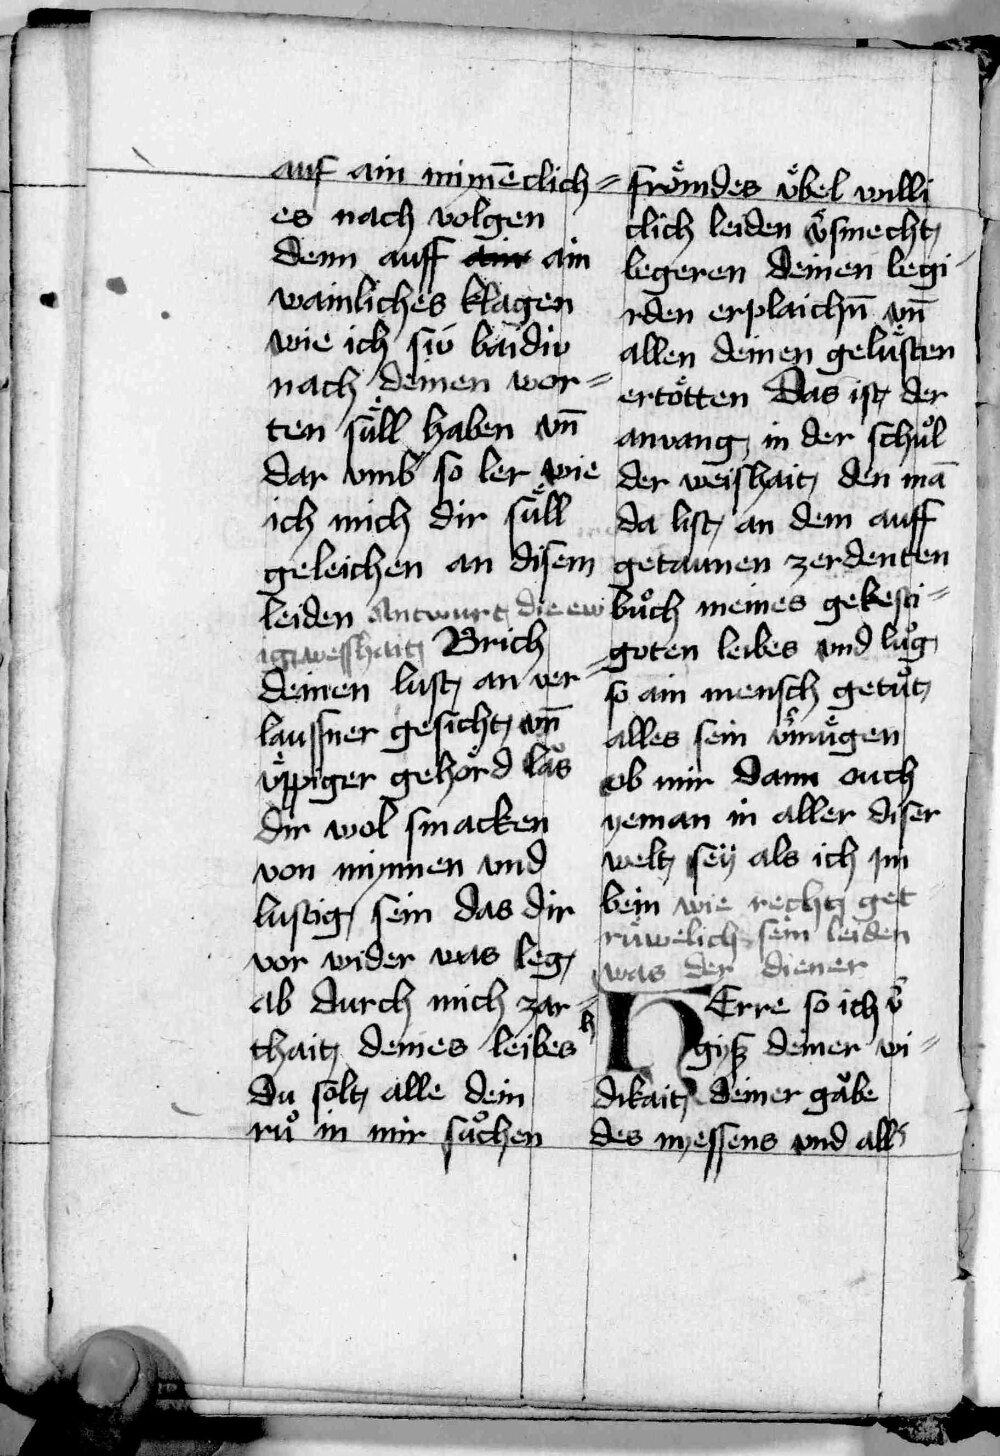 auf ain mīnēclich=
es nach volgen
denn auff ain ain
wainliches klagen
wie ich siv baidiv
nach deinen wor=
ten suͤll haben vn̄
dar vmb so ler wie
ich mich dir suͤll
geleichen an disem
leiden Antwurt die ew
ig weyshait Brich
deinen lust an ver=
laussner gesicht vn̄
vͤppiger gehoͤrd laͧs
dir wol smacken
von mynnen vnd
lustig sein das dir
vor wider was leg
ab durch mich zar=
thait deines leibes
du solt alle dein
ruͦ in mir suͦchen
froͤmdes vͤbel willi
clich leiden v̄smecht
begeren deinen begi
rden erplaichn̄ vn̄
allen deinen geluͤsten
ertoͤtten Das ist der
anvang in der schuͦl
der weishait den mā
da list an dem auff
getaunen zerdenten
buͦch meines gekesti=
goten leibes vnd luͦg
so ain mensch getuͦt
alles sein v̄muͤgen
ob mir dann ouch
yeman in aller diser
welt seÿ als ich im
bein wie recht get
ruͤwelich sein leiden
was der diener
h
HErre so ich v̄
giss deiner wi=
dikait deiner gaͮbe
des nyessens vnd all